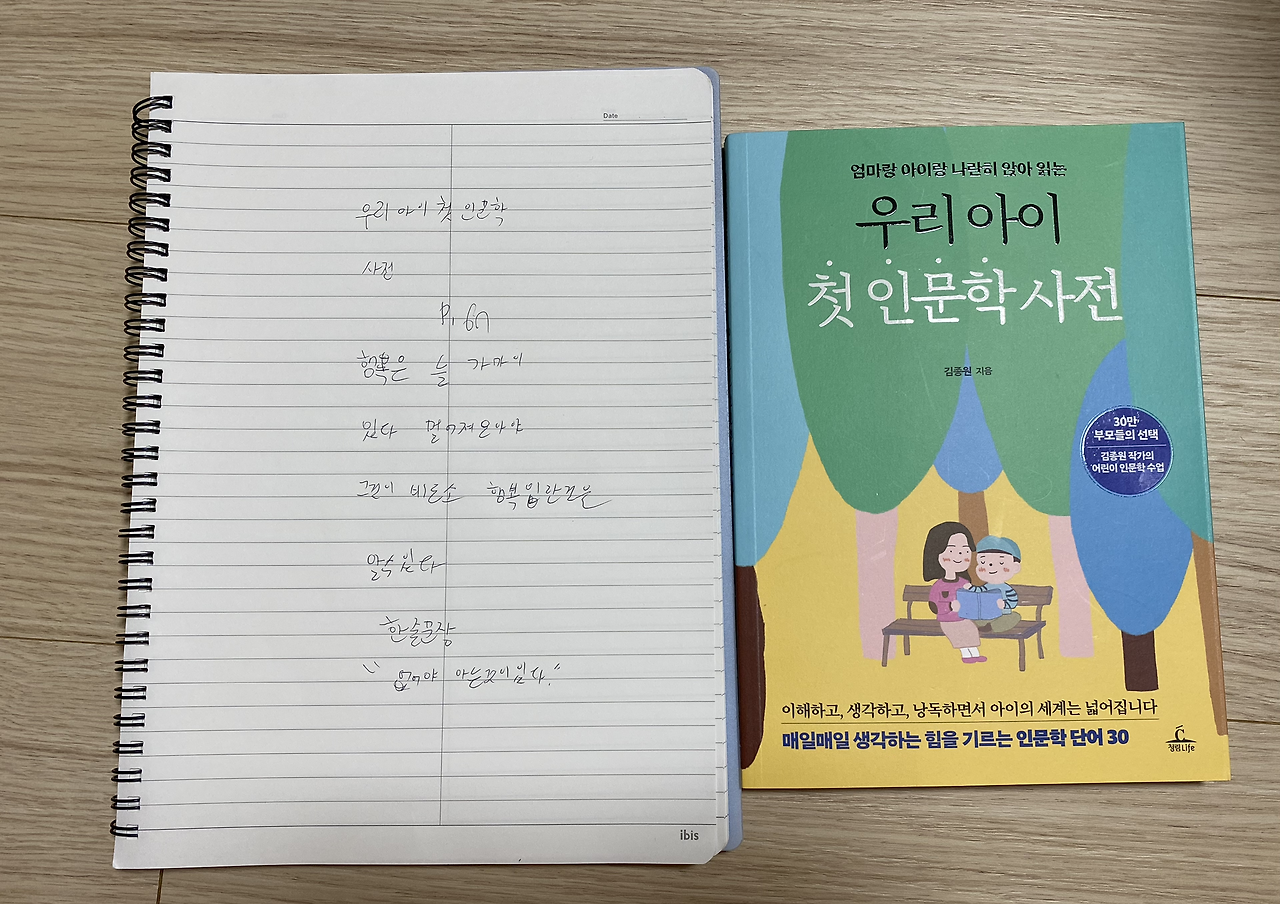 Date
우리 아이 첫 인문학
사전
행복은 늘 가까이
있다 멀어져 보아야
그것이 비로소 행복임란것은
알수있다
한줄문장
"없어야 아는것이있다."
ibis
엄마랑 아이랑 나란히 앉아 읽는
우리 아이
첫 인문학 사전
김종원 지음
30만
부모들의 선택
김종원 작가의
어린이 인문학 수업
이해하고, 생각하고, 낭독하면서 아이의 세계는 넓어집니다
매일매일 생각하는 힘을 기르는 인문학 단어 30
청림Life